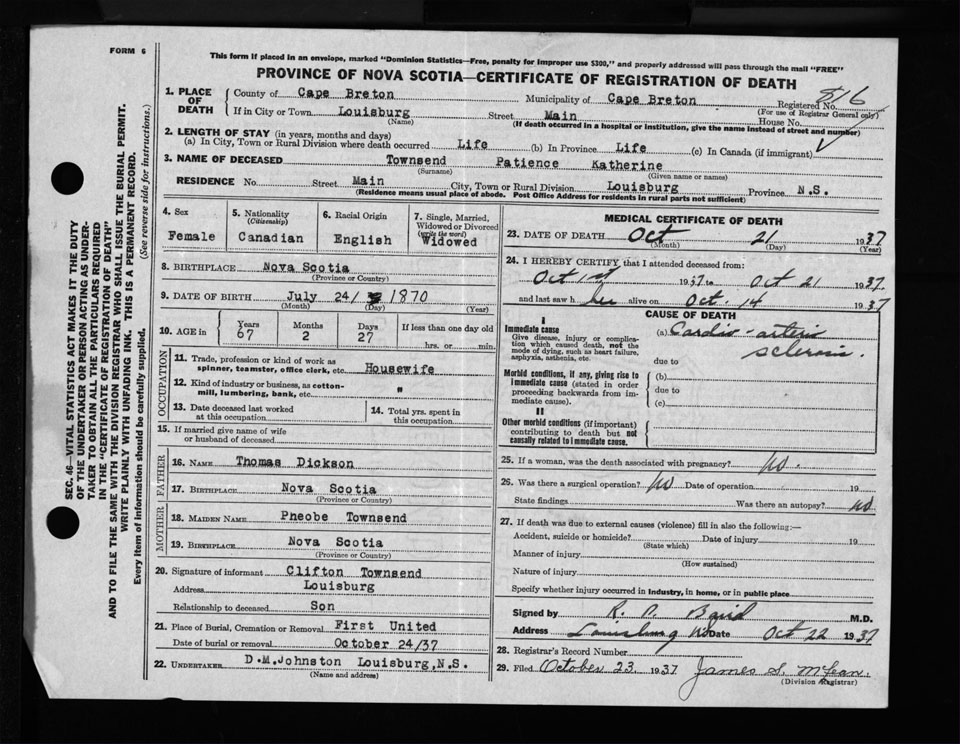 FORM 6
This form if placed in an envelope, marked "Dominion Statistics—Free, penalty for improper use $300," and properly addressed will pass through the mail "FREE"
PROVINCE OF NOVA SCOTIA—CERTIFICATE OF REGISTRATION OF DEATH
SEC. 46—VITAL STATISTICS ACT MAKES IT THE DUTY
OF THE UNDERTAKER OR PERSON ACTING AS UNDER-
TAKER TO OBTAIN ALL THE PARTICULARS REQUIRED
IN THE "CERTIFICATE OF REGISTRATION OF DEATH"
AND TO FILE THE SAME WITH THE DIVISION REGISTRAR WHO SHALL ISSUE THE BURIAL PERMIT.
WRITE PLAINLY WITH UNFADING INK. THIS IS A PERMANENT RECORD.
Every item of information should be carefully supplied. (See reverse side for instructions.)
1. PLACE OF DEATH County of Cape Breton Municipality of Cape Breton Registered No. 816
(For use of Registrar General only)
If in City or Town Louisburg Street Main House No.
(Name) (If death occurred in a hospital or institution, give the name instead of street and number)
2. LENGTH OF STAY (in years, months and days)
(a) In City, Town or Rural Division where death occurred Life (b) In Province Life (c) In Canada (if immigrant)
3. NAME OF DECEASED Townsend Patience Katherine
(Surname) (Given name or names)
RESIDENCE No. Street Main City, Town or Rural Division Louisburg Province N.S.
(Residence means usual place of abode. Post Office Address for residents in rural parts not sufficient)
4. Sex 5. Nationality (Citizenship) 6. Racial Origin 7. Single, Married, Widowed or Divorced (write the word)
Female Canadian English Widowed
8. BIRTHPLACE Nova Scotia
(Province or Country)
9. DATE OF BIRTH July 24/ 1870
(Month) (Day) (Year)
10. AGE in Years Months Days If less than one day old
67 2 27 hrs. or min.
OCCUPATION
11. Trade, profession or kind of work as
spinner, teamster, office clerk, etc. Housewife
12. Kind of industry or business, as cotton-
mill, lumbering, bank, etc. "
13. Date deceased last worked
at this occupation
14. Total yrs. spent in
this occupation
15. If married give name of wife
or husband of deceased
FATHER
16. NAME Thomas Dickson
17. BIRTHPLACE Nova Scotia
(Province or Country)
MOTHER
18. MAIDEN NAME Pheobe Townsend
19. BIRTHPLACE Nova Scotia
(Province or Country)
20. Signature of informant Clifton Townsend
Address Louisburg
Relationship to deceased Son
21. Place of Burial, Cremation or Removal First United
Date of burial or removal October 24/37
22. UNDERTAKER D.M.Johnston Louisburg,N.S.
(Name and address)
MEDICAL CERTIFICATE OF DEATH
23. DATE OF DEATH Oct 21 1937
(Month) (Day) (Year)
24. I HEREBY CERTIFY, that I attended deceased from:
Oct 1st 1937 to Oct 21 1937
and last saw her alive on Oct 14 1937
CAUSE OF DEATH
I
Immediate cause (a) Cardio-arterio
Give disease, injury or complica-
tion which caused death, not the sclerosis.
mode of dying, such as heart failure,
asphyxia, asthenia, etc. due to
Morbid conditions, if any, giving rise to (b)
immediate cause (stated in order due to
proceeding backwards from im-
mediate cause). (c)
II
Other morbid conditions (if important)
contributing to death but not
causally related to immediate cause.
25. If a woman, was the death associated with pregnancy? No.
26. Was there a surgical operation? No Date of operation 19
State findings Was there an autopsy? No
27. If death was due to external causes (violence) fill in also the following:—
Accident, suicide or homicide? Date of injury 19
(State which)
Manner of injury
(How sustained)
Nature of injury
Specify whether injury occurred in industry, in home, or in public place
Signed by R. P. Baird M.D.
Address Louisburg NS Date Oct 22 1937
28. Registrar's Record Number
29. Filed October 23 1937 James S. McLean
(Division Registrar)